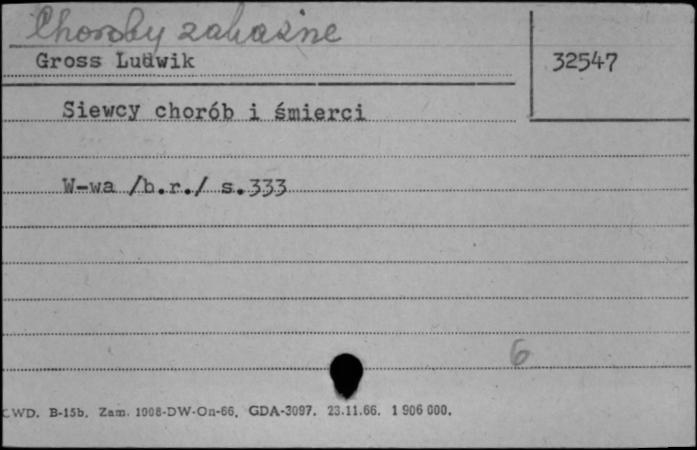 Choroby zakaźne
Gross Ludwik
32547
Siewcy chorób i śmierci
W-wa /b.r./ s.333
6
CWD. B-15b. Zam. 1008-DW-On-66. GDA-3097. 23.11.66. 1 906 000.